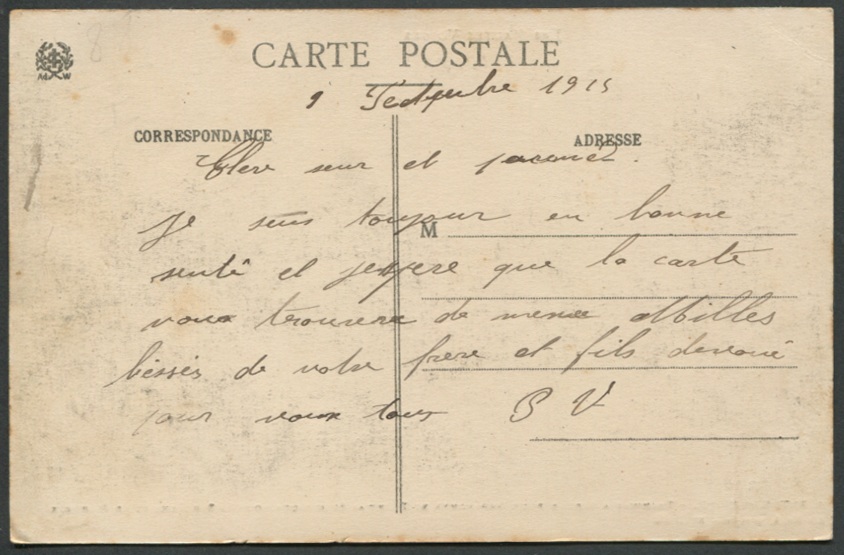 CARTE POSTALE
9 Septembre 1915
CORRESPONDANCE
ADRESSE
Chere seur et
Je suis toujour en bonne
M
senté et jespere que la carte
vous trouvera de meme Milles
bessés de votre frere et fils devoué
pour vous tous P V
M W